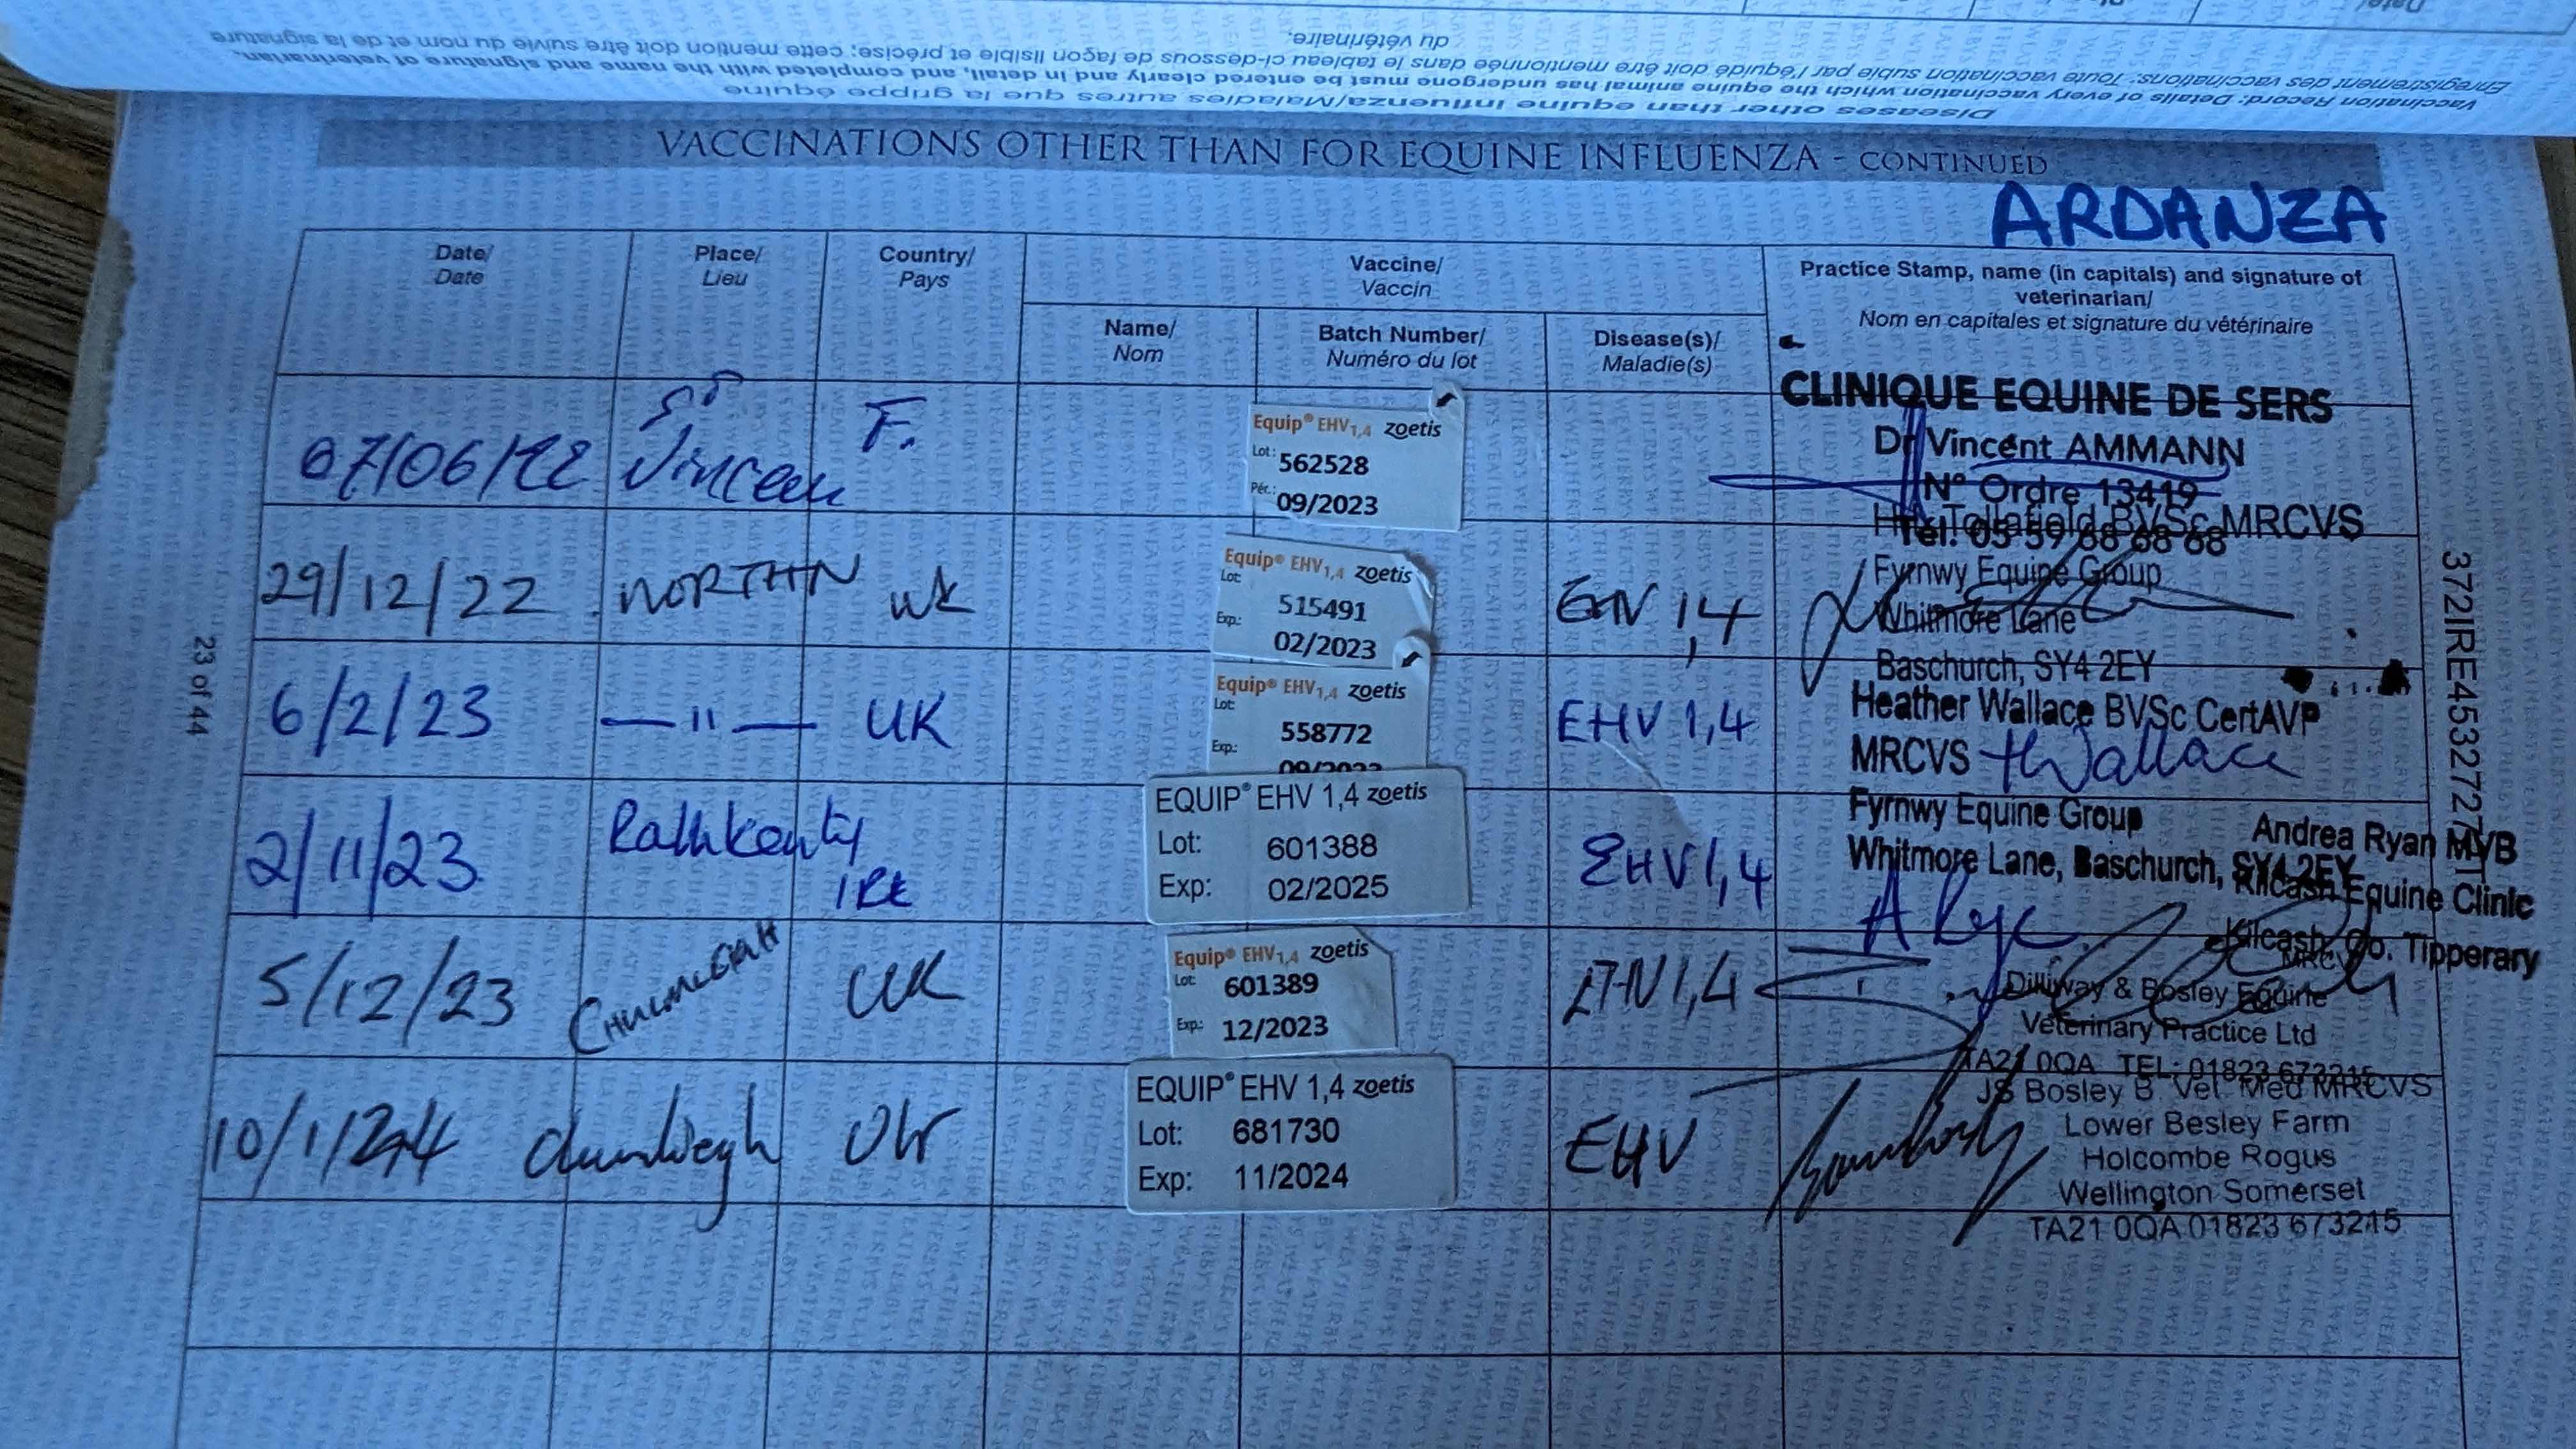 Diseases other than equine influenza/Maladies autres que la grippe équine
Vaccination Record: Details of every vaccination which the equine animal has undergone must be entered clearly and in detail, and completed with the name and signature of veterinarian.
Enregistrement des vaccinations: Toute vaccination subie par l'équidé doit être mentionnée dans le tableau ci-dessous de façon lisible et précise; cette mention doit être suivie du nom et de la signature
du vétérinaire.
VACCINATIONS OTHER THAN FOR EQUINE INFLUENZA - CONTINUED
ARDANZA
Date/
Date
Place/
Lieu
Country/
Pays
Vaccine/
Vaccin
Name/
Nom
Batch Number/
Numéro du lot
Disease(s)/
Maladie(s)
Practice Stamp, name (in capitals) and signature of
veterinarian/
Nom en capitales et signature du vétérinaire
07/06/22
St
Vincent
F.
Equip® EHV1,4 zoetis
Lot: 562528
Pér.: 09/2023
CLINIQUE EQUINE DE SERS
Dr Vincent AMMANN
N° Ordre 13419
Tel. 05 59 68 68 68
29/12/22
NORTHN
UK
Equip® EHV1,4 zoetis
Lot: 515491
Exp.: 02/2023
EHV 1,4
BVSc MRCVS
Fyrnwy Equine Group
Whitmore Lane
Baschurch, SY4 2EY
6/2/23
— " —
UK
Equip® EHV1,4 zoetis
Lot: 558772
Exp.: 09/2023
EHV 1,4
Heather Wallace BVSc CertAVP
MRCVS HWallace
Fyrnwy Equine Group
Whitmore Lane, Baschurch, SY4 2EY
2/11/23
Rathkenty
IRE
EQUIP® EHV 1,4 zoetis
Lot: 601388
Exp: 02/2025
EHV 1,4
Andrea Ryan MVB
Kilcash Equine Clinic
Kilcash, Co. Tipperary
5/12/23
UK
Equip® EHV1,4 zoetis
Lot: 601389
Exp.: 12/2023
EHV 1,4
MRCVS
Dilliway & Bosley Equine
Veterinary Practice Ltd
TA21 0QA TEL: 01823 673215
10/1/24
UK
EQUIP® EHV 1,4 zoetis
Lot: 681730
Exp: 11/2024
EHV
JS Bosley B. Vet. Med MRCVS
Lower Besley Farm
Holcombe Rogus
Wellington Somerset
TA21 0QA 01823 673215
23 of 44